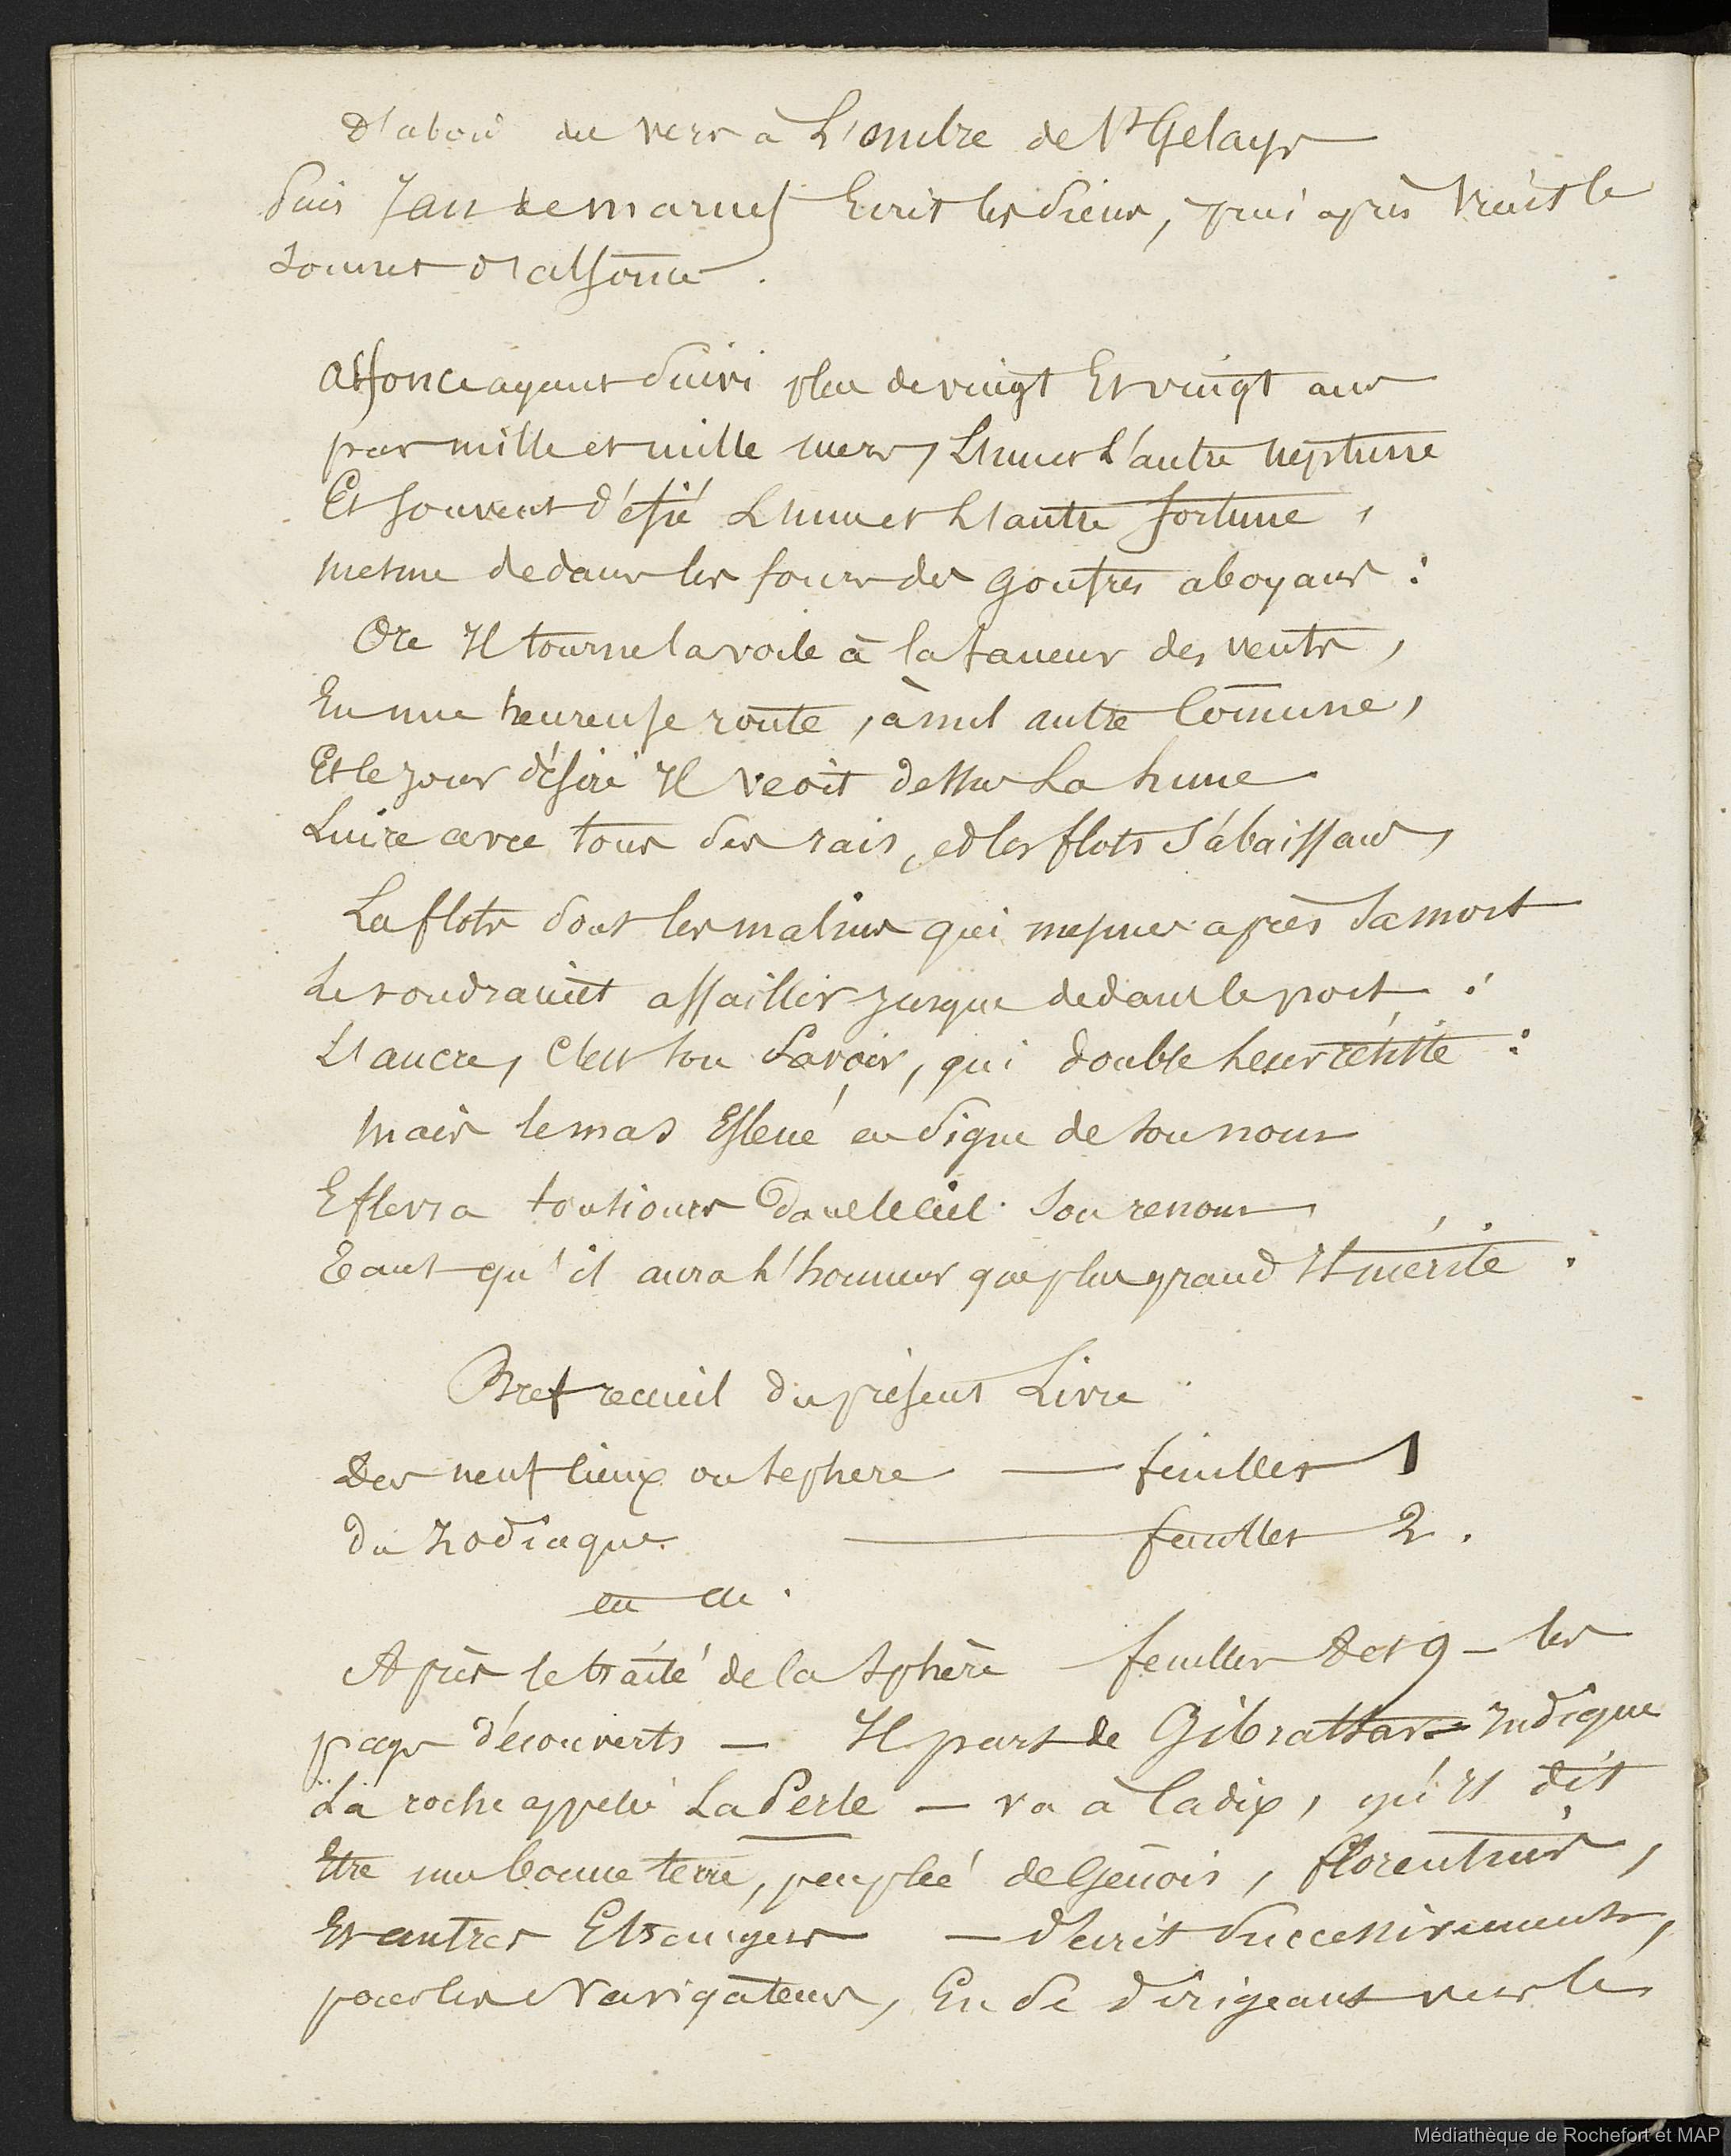 D'abord des vers à L'ombre de St Gelays
Puis Jan de marnef Ecrit les siens, puis après vient le
Sonnet d'alfonce.
Alfonce ayant suivi plus de vingt Et vingt ans
par mille et mille mers, L'un et L'autre neptune
Et souvent défié L'une et L'autre fortune,
mesme dedans les fours des goufres aboyans :
Ore Il tourne la voile à la faueur des vents,
En une heureuse route, à nul autre Comune,
Et le jour désiré Il veoit dessus La hune
Luire avec tous ses rais, et les flots s'abaissans,
La flots sont les malins qui mesmes après sa mort
Le voudraient assaillir jusque dedans le port :
L'ancre, c'est son savoir, qui double heur résiste :
Mais le mas Esleué en signe de son nom
Eslevra tousiours dans le ciel son renom
Tant qu'il aura L'honneur que plus grand Il mérite.
Bref recueil du présent Livre
Des neuf cieux ou sephere — feuilles 1
du Zodiaque — feuilles 2.
Après le traité de la Sphère feuilles 8 et 9 — les
pays découverts — Il part de Gibraltar — Indique
La roche appelée La Perle — va à Cadix, qu'il dit
Etre une bonne terre, peuplée de Genois, florentins,
Et autres Etrangers — décrit successivement,
pour les Navigateurs, En se dirigeant vers le
Médiathèque de Rochefort et MAP